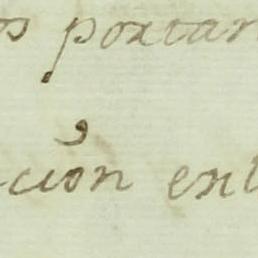 os portar
ción ent